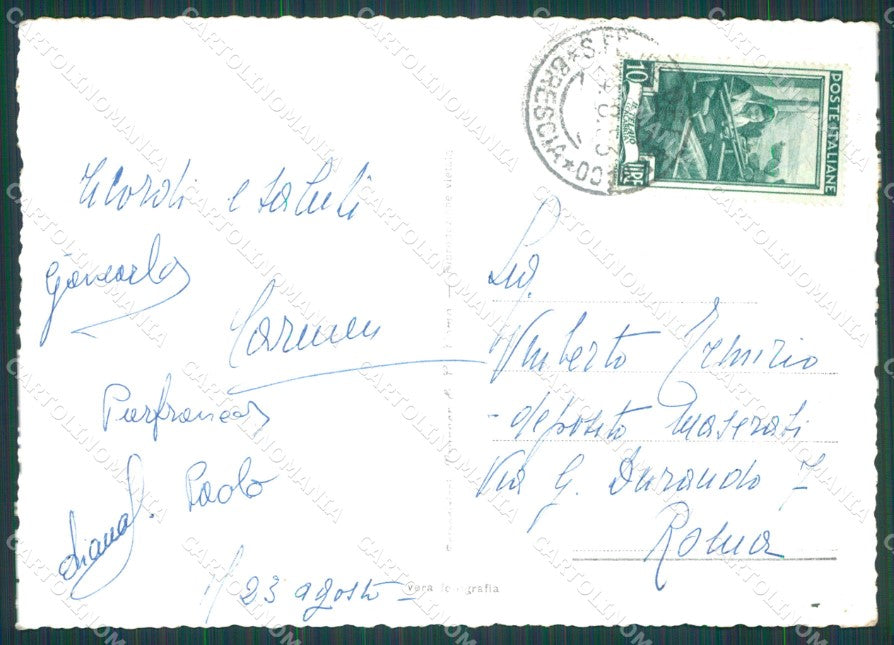 Ricordi e saluti
Giancarlo
Carmen
Pierfranco
Paolo
Diana
li 23 agosto
Sig.
Umberto
deposito Maserati
Via G. Durando 7
Roma
POSTE ITALIANE
10
LIRE
BRESCIA
Vera fotografia
CARTOLINOMANIA